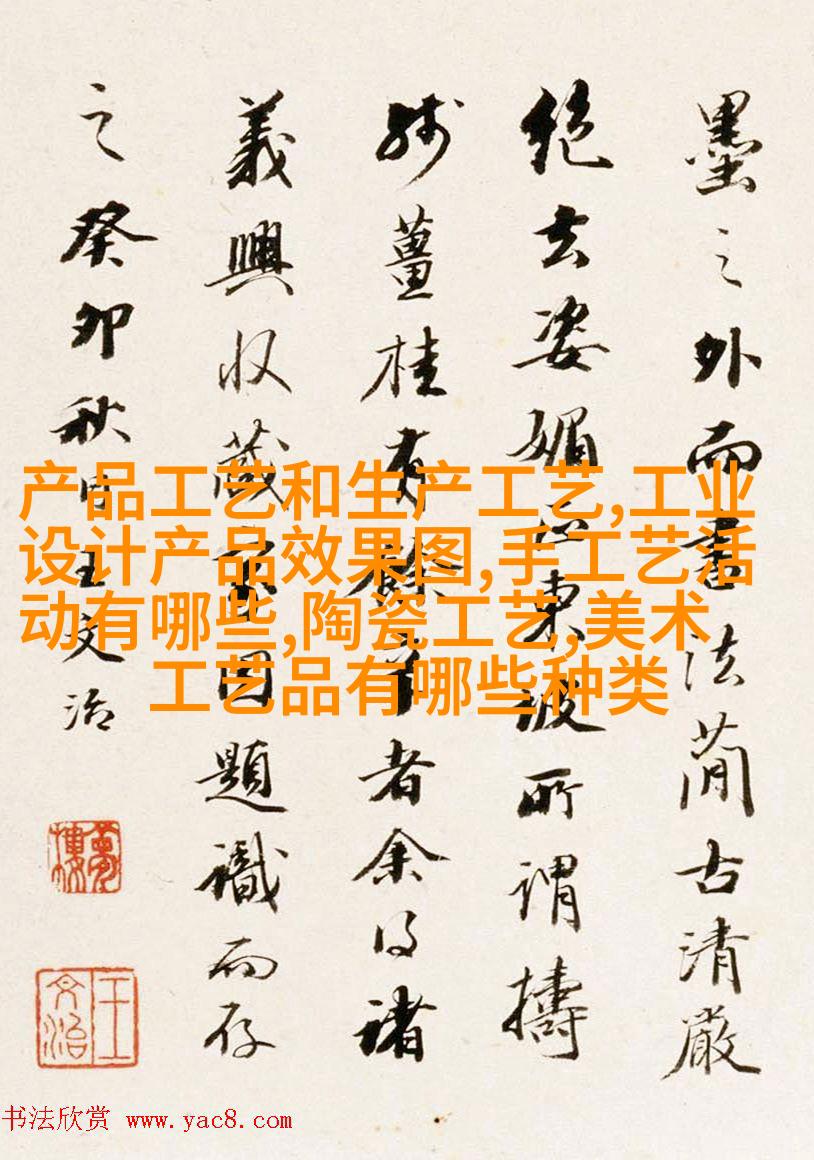 墨之外而書法簡古清嚴
絕去姿媚正東坡所謂擣
殘薑桂有餘辛者余得諸
義興收藏家因題識而存
之癸卯秋日王文治
夢樓
王文治
产品工艺和生产工艺,工业
设计产品效果图,手工艺活
动有哪些,陶瓷工艺,美术
工艺品有哪些种类
书法欣赏 www.yac8.com